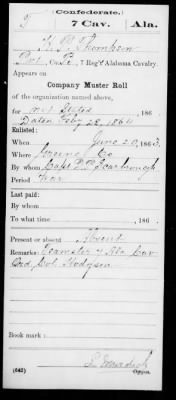 (Confederate.)
T 7 Cav. Ala.
Thompson
Pvt., Co. , 7 Reg't Alabama Cavalry.
Appears on
Company Muster Roll
of the organization named above,
for not stated , 186 .
Dated Feby 28, 1864
Enlisted:
When June 20, 1863.
Where
By whom Capt Scarborough
Period War
Last paid:
By whom
To what time , 186 .
Present or absent Absent
Remarks: Teamster 7 Ala Cav
Ord Col Hodgson
Book mark:
(642) Copyist.